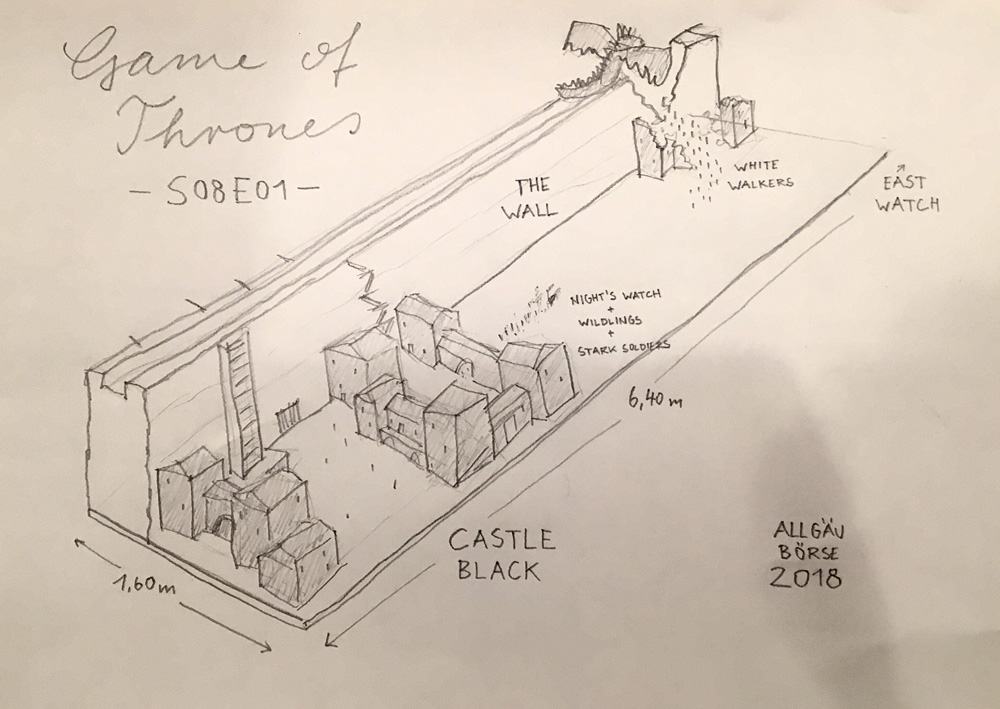 Game of
Thrones
- S08E01 -
THE
WALL
WHITE
WALKERS
EAST
WATCH
NIGHT'S WATCH
+
WILDLINGS
+
STARK SOLDIERS
6,40m
CASTLE
BLACK
1,60m
ALLGÄU
BÖRSE
2018